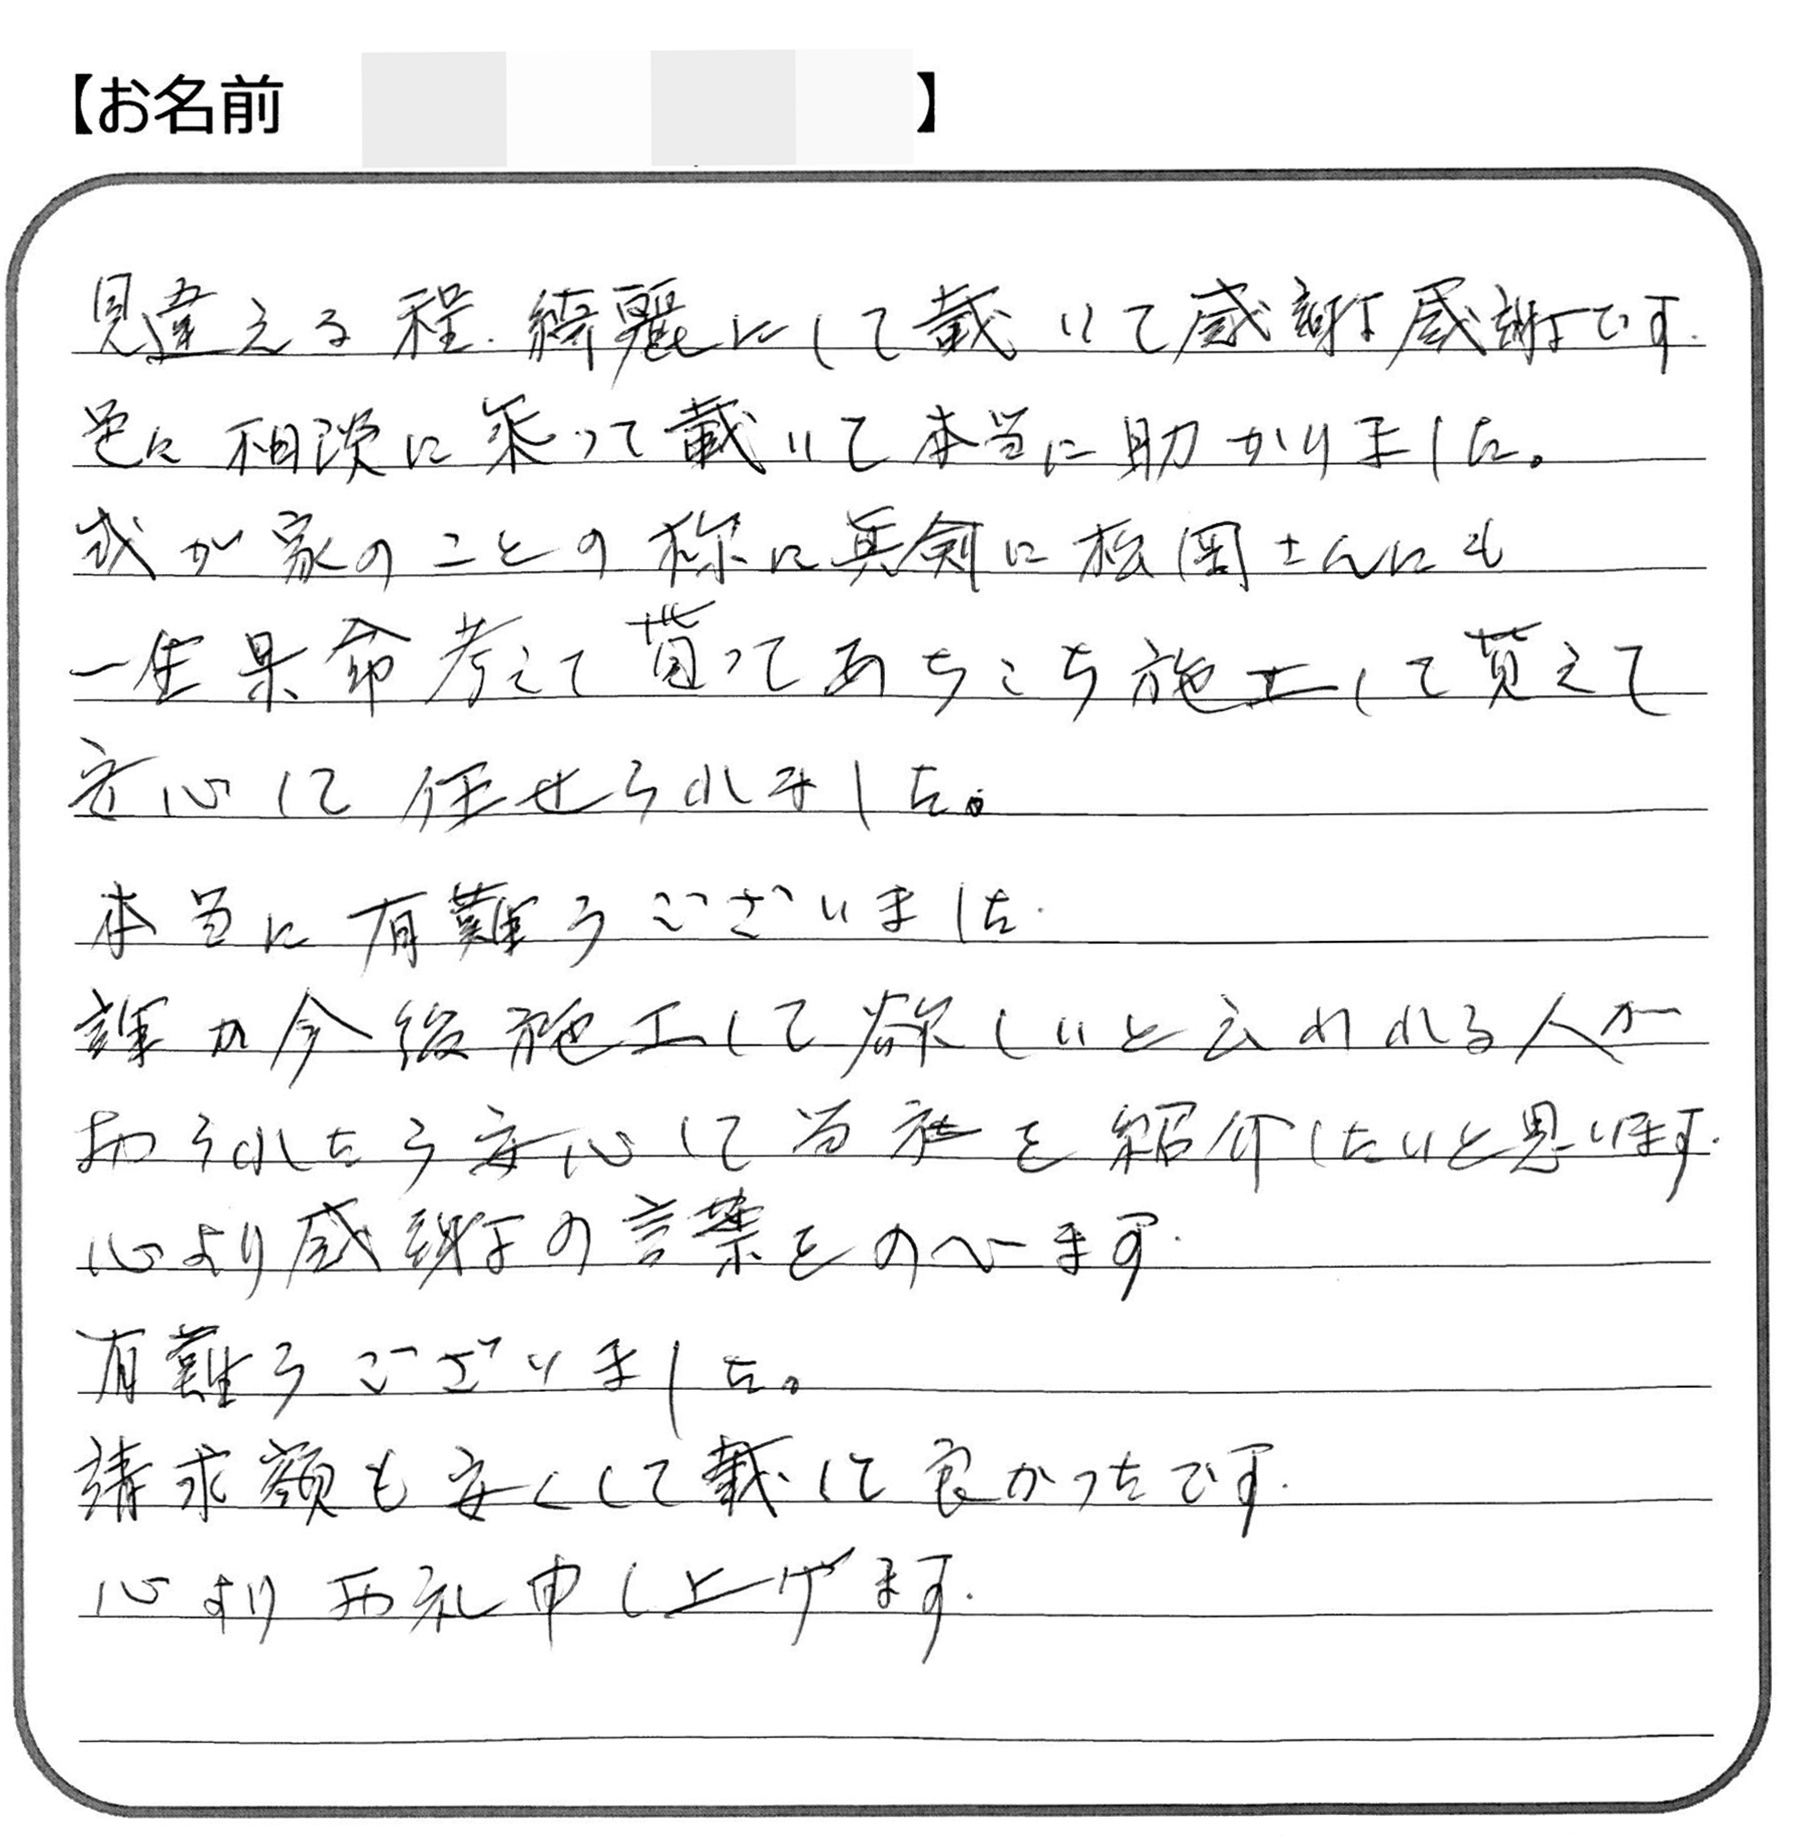 【お名前 】
見違える程.綺麗にして戴いて感謝感謝です.
色々相談に乗って戴いて本当に助かりました。
我が家のことの様に真剣に松岡さんにも
一生懸命考えて貰ってあちこち施工して貰えて
安心して任せられました。
本当に有難うございました.
誰か今後施工して欲しいと云われる人が
おられたら安心して当社を紹介したいと思います.
心より感謝の言葉をのべます.
有難うございました。
請求額も安くして戴いて良かったです.
心よりお礼申し上げます.